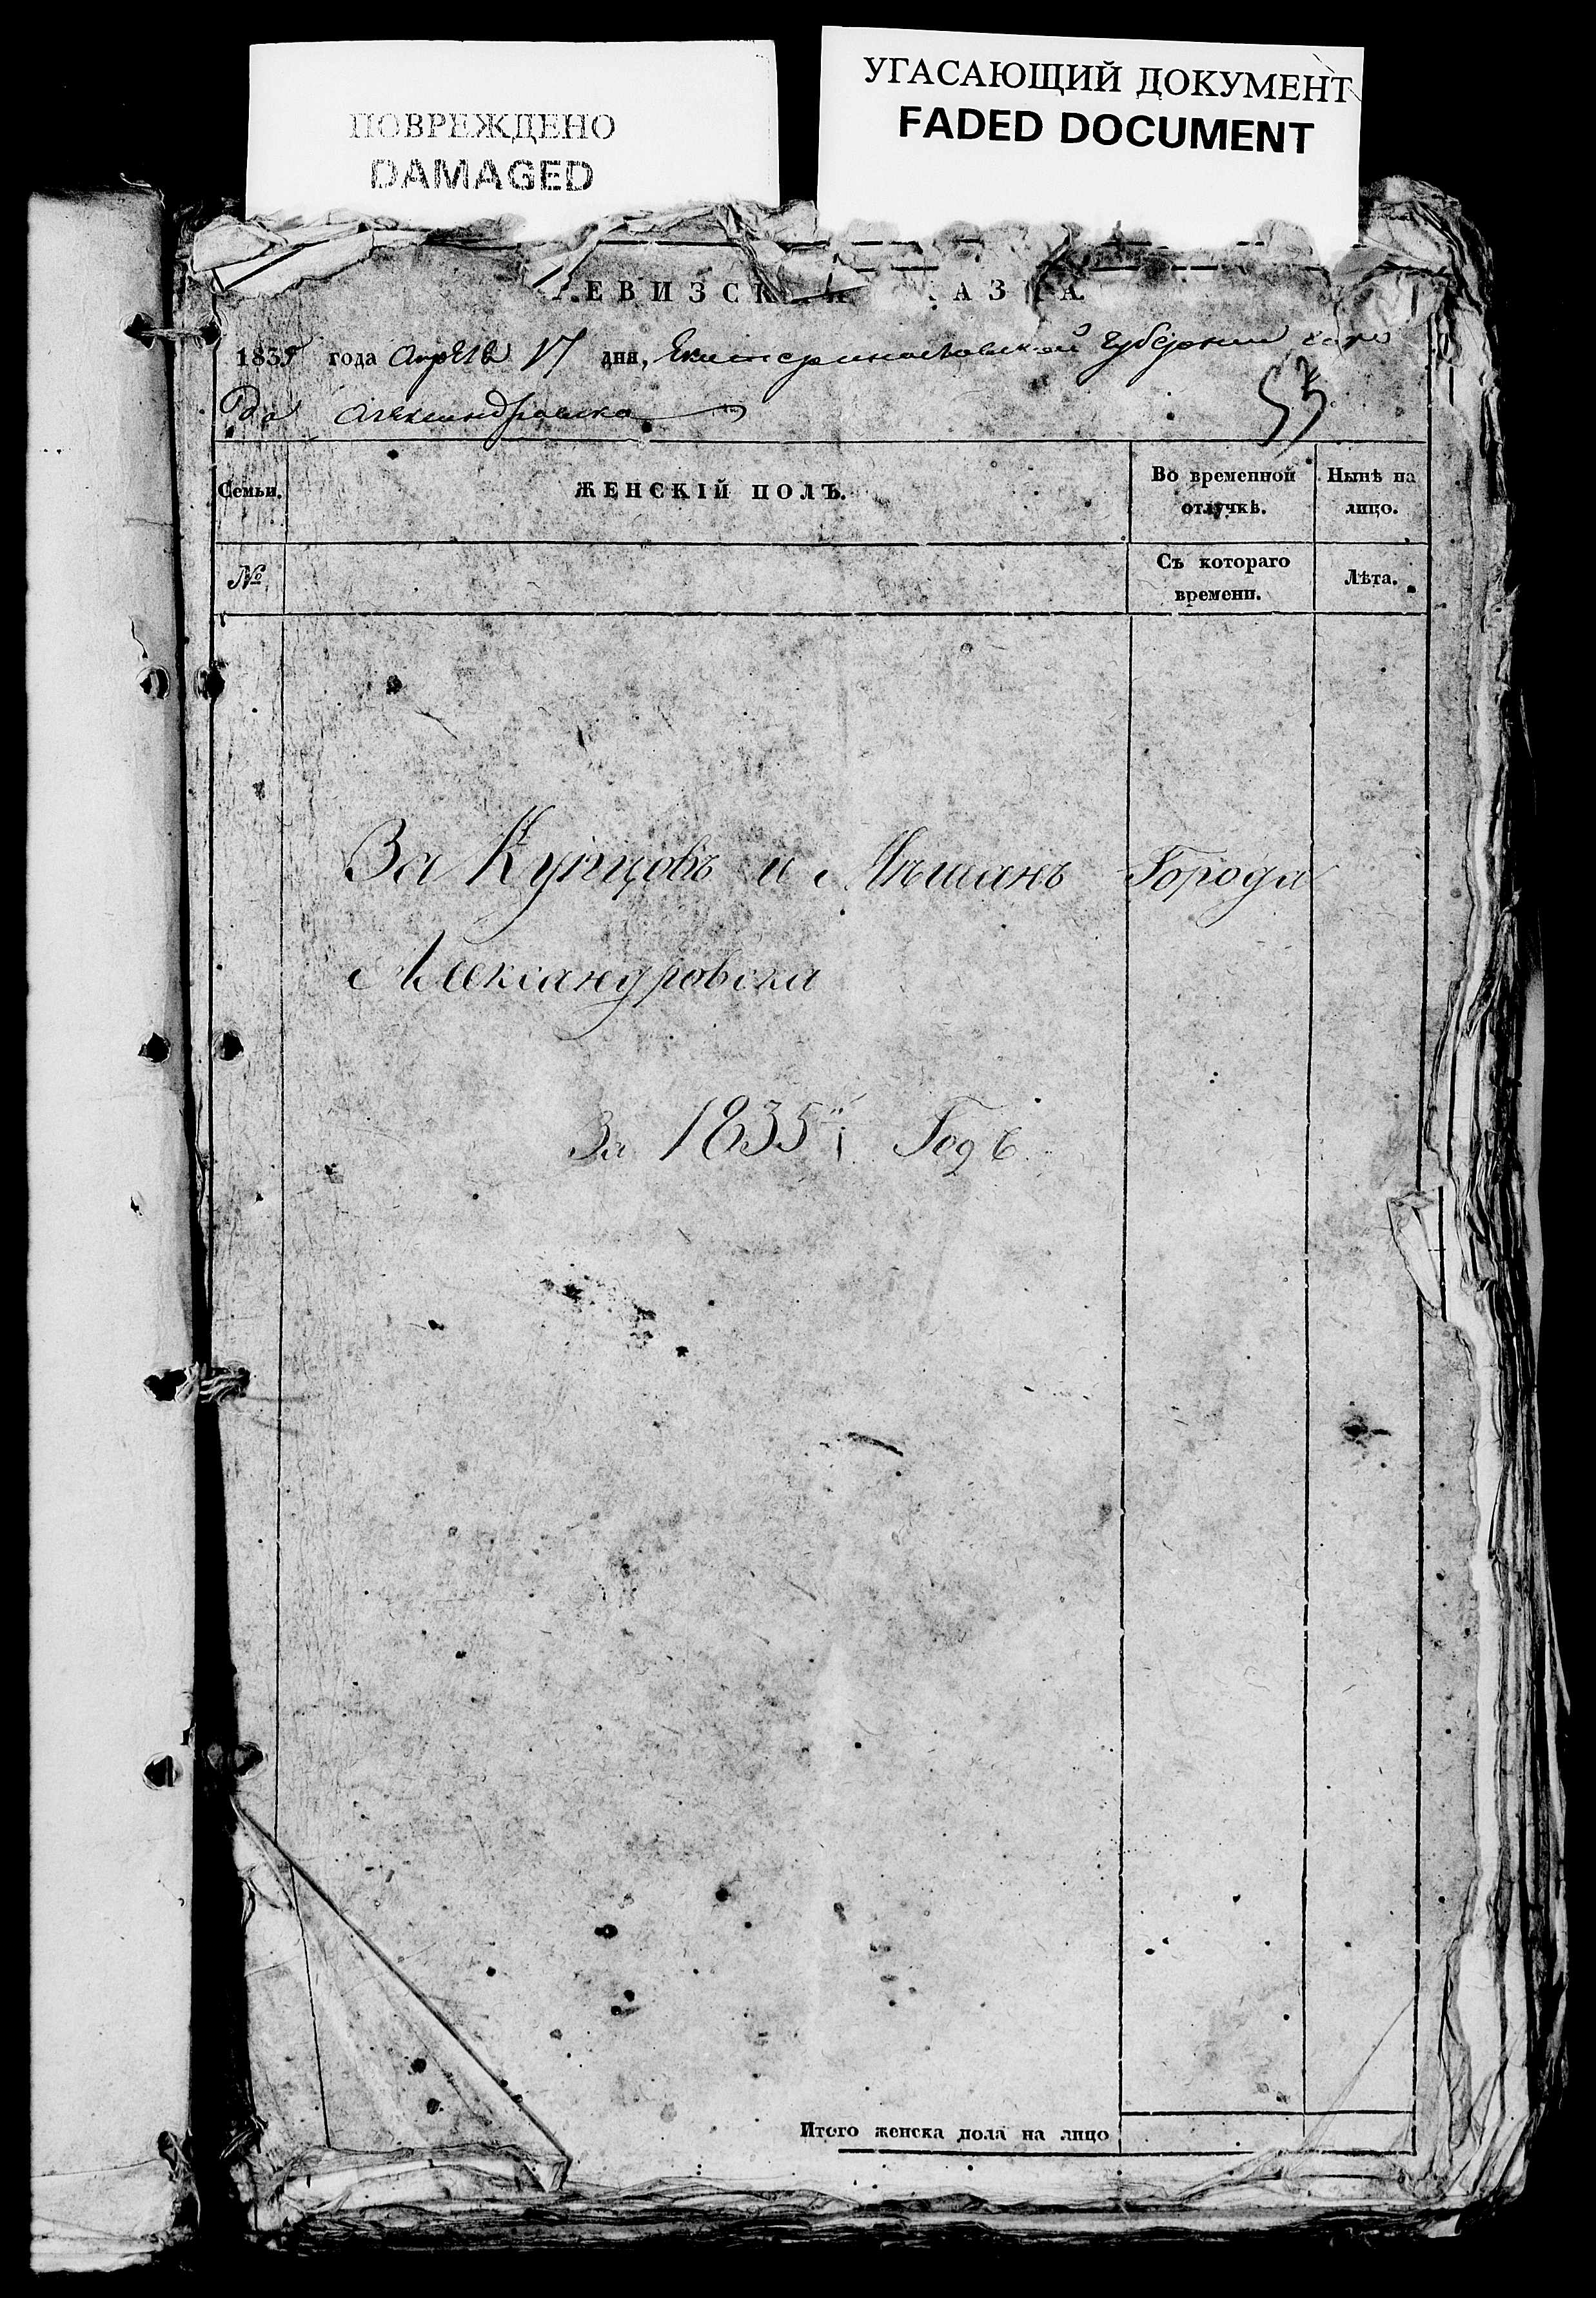 ПОВРЕЖДЕНО
DAMAGED
УГАСАЮЩИЙ ДОКУМЕНТ
FADED DOCUMENT
ЕВИЗСК АЗ А.
1835 года Апреля 17 дня, Екатеринославской губернии горо
да Александровска
53
Семьи.
ЖЕНСКІЙ ПОЛЪ.
Во временной
отлучкѣ.
Нынѣ на
лицо.
№
Съ котораго
времени.
Лѣта.
За Купцовъ и Мѣщанъ Города
Александровска
За 1835й Годъ
Итого женска пола на лицо